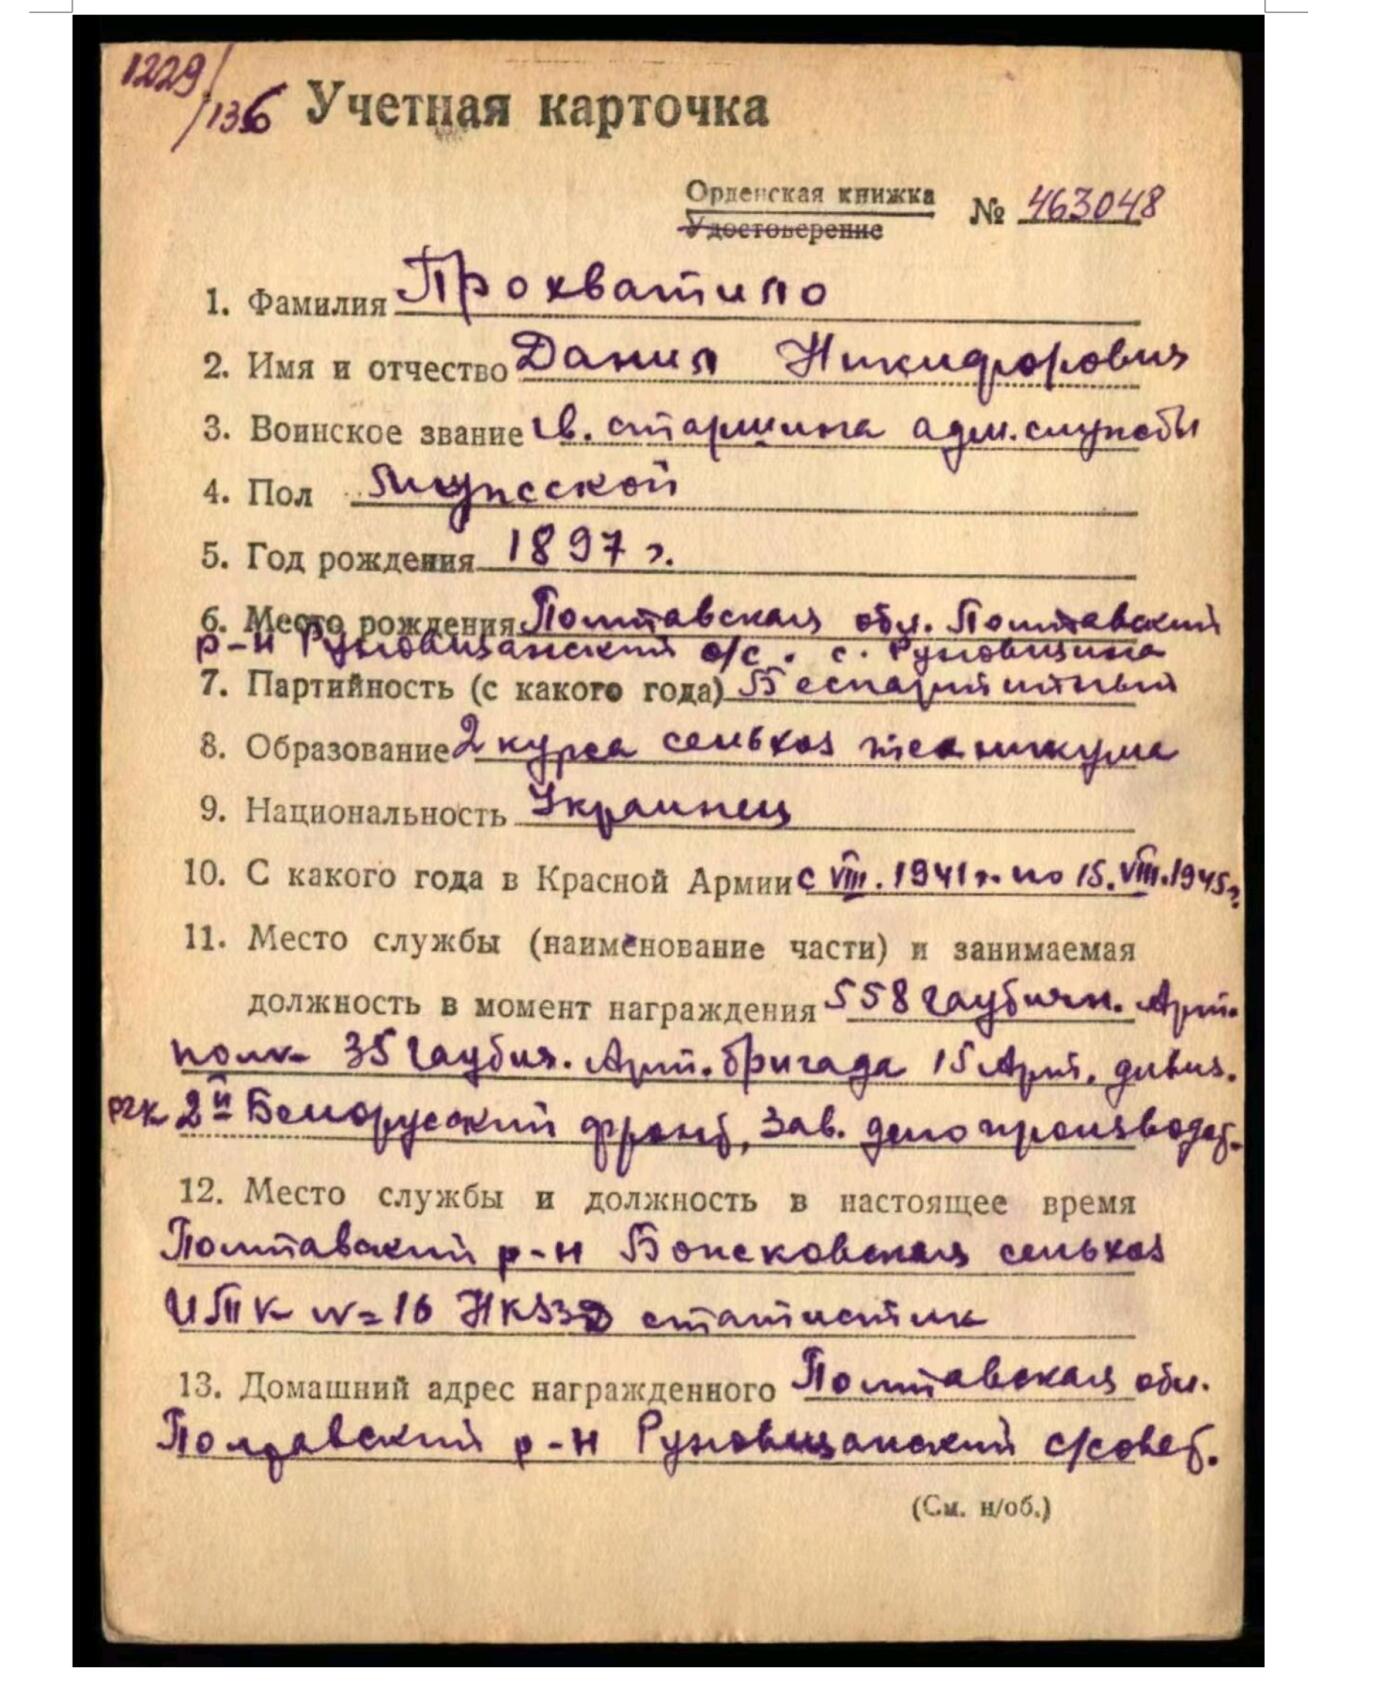 1229/
/136 Учетная карточка
Орденская книжка № 463048
Удостоверение
1. Фамилия Прохватило
2. Имя и отчество Данил Никифорович
3. Воинское звание гв. старшина адм. службы
4. Пол Мужской
5. Год рождения 1897 г.
6. Место рождения Полтавская обл. Полтавский
р-н Руновщанский с/с. с. Руновщина
7. Партийность (с какого года) Беспартийный
8. Образование 2 курса сельхоз техникума
9. Национальность Украинец
10. С какого года в Красной Армии с VIII. 1941 г. по 15. VIII. 1945 г.
11. Место службы (наименование части) и занимаемая
должность в момент награждения 558 гаубичн. Арт.
полк 35 гаубич. Арт. бригада 15 Арт. дивиз.
РГК 2й Белорусский фронт, Зав. делопроизводст.
12. Место службы и должность в настоящее время
Полтавский р-н сельхоз
ИТК №16 статистик
13. Домашний адрес награжденного Полтавская обл.
Полтавский р-н Руновщанский с/совет.
(См. н/об.)